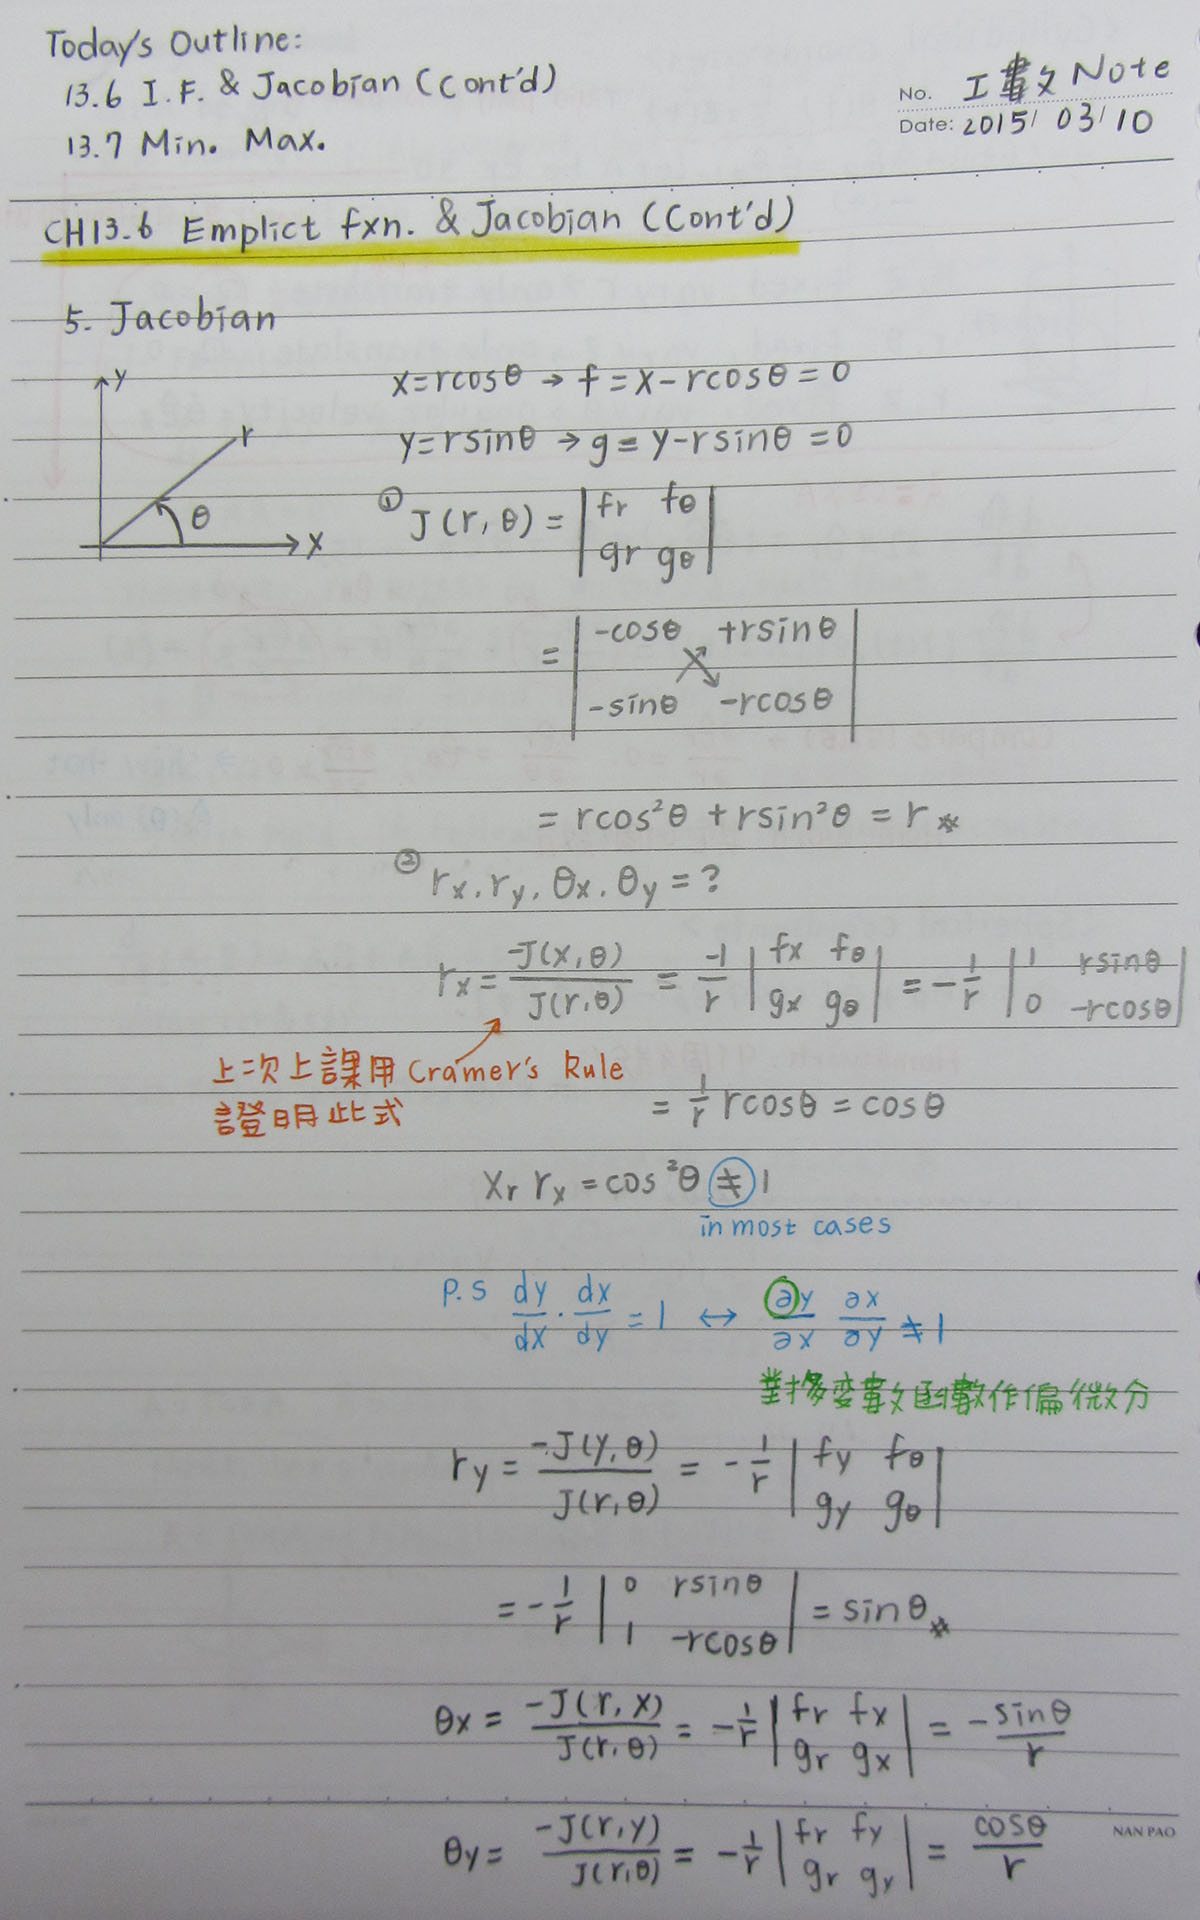 Today's Outline:
13.6 I.F. & Jacobian (Cont'd)
13.7 Min. Max.
No. 工數 Note
Date: 2015/ 03/10
CH13.6 Emplict fxn. & Jacobian (Cont'd)
5. Jacobian
y
r
θ
x
x=rcosθ → f=x-rcosθ=0
y=rsinθ → g=y-rsinθ=0
① J(r,θ) = | fr fθ |
| gr gθ |
= | -cosθ +rsinθ |
| -sinθ -rcosθ |
= rcos²θ + rsin²θ = r ※
② rx. ry. θx. θy = ?
rx = -J(x,θ)/J(r,θ) = -1/r | fx fθ | = -1/r | 1 rsinθ |
| gx gθ | | 0 -rcosθ |
上次上課用 Cramer's Rule
證明此式
= 1/r rcosθ = cosθ
Xr rx = cos²θ ≠ 1
in most cases
P.S dy/dx · dx/dy = 1 ↔ ∂y/∂x ∂x/∂y ≠ 1
對多變數函數作偏微分
ry = -J(y,θ)/J(r,θ) = -1/r | fy fθ |
| gy gθ |
= -1/r | 0 rsinθ | = sinθ ※
| 1 -rcosθ |
θx = -J(r,x)/J(r,θ) = -1/r | fr fx | = -sinθ/r
| gr gx |
θy = -J(r,y)/J(r,θ) = -1/r | fr fy | = cosθ/r
| gr gy |
NAN PAO